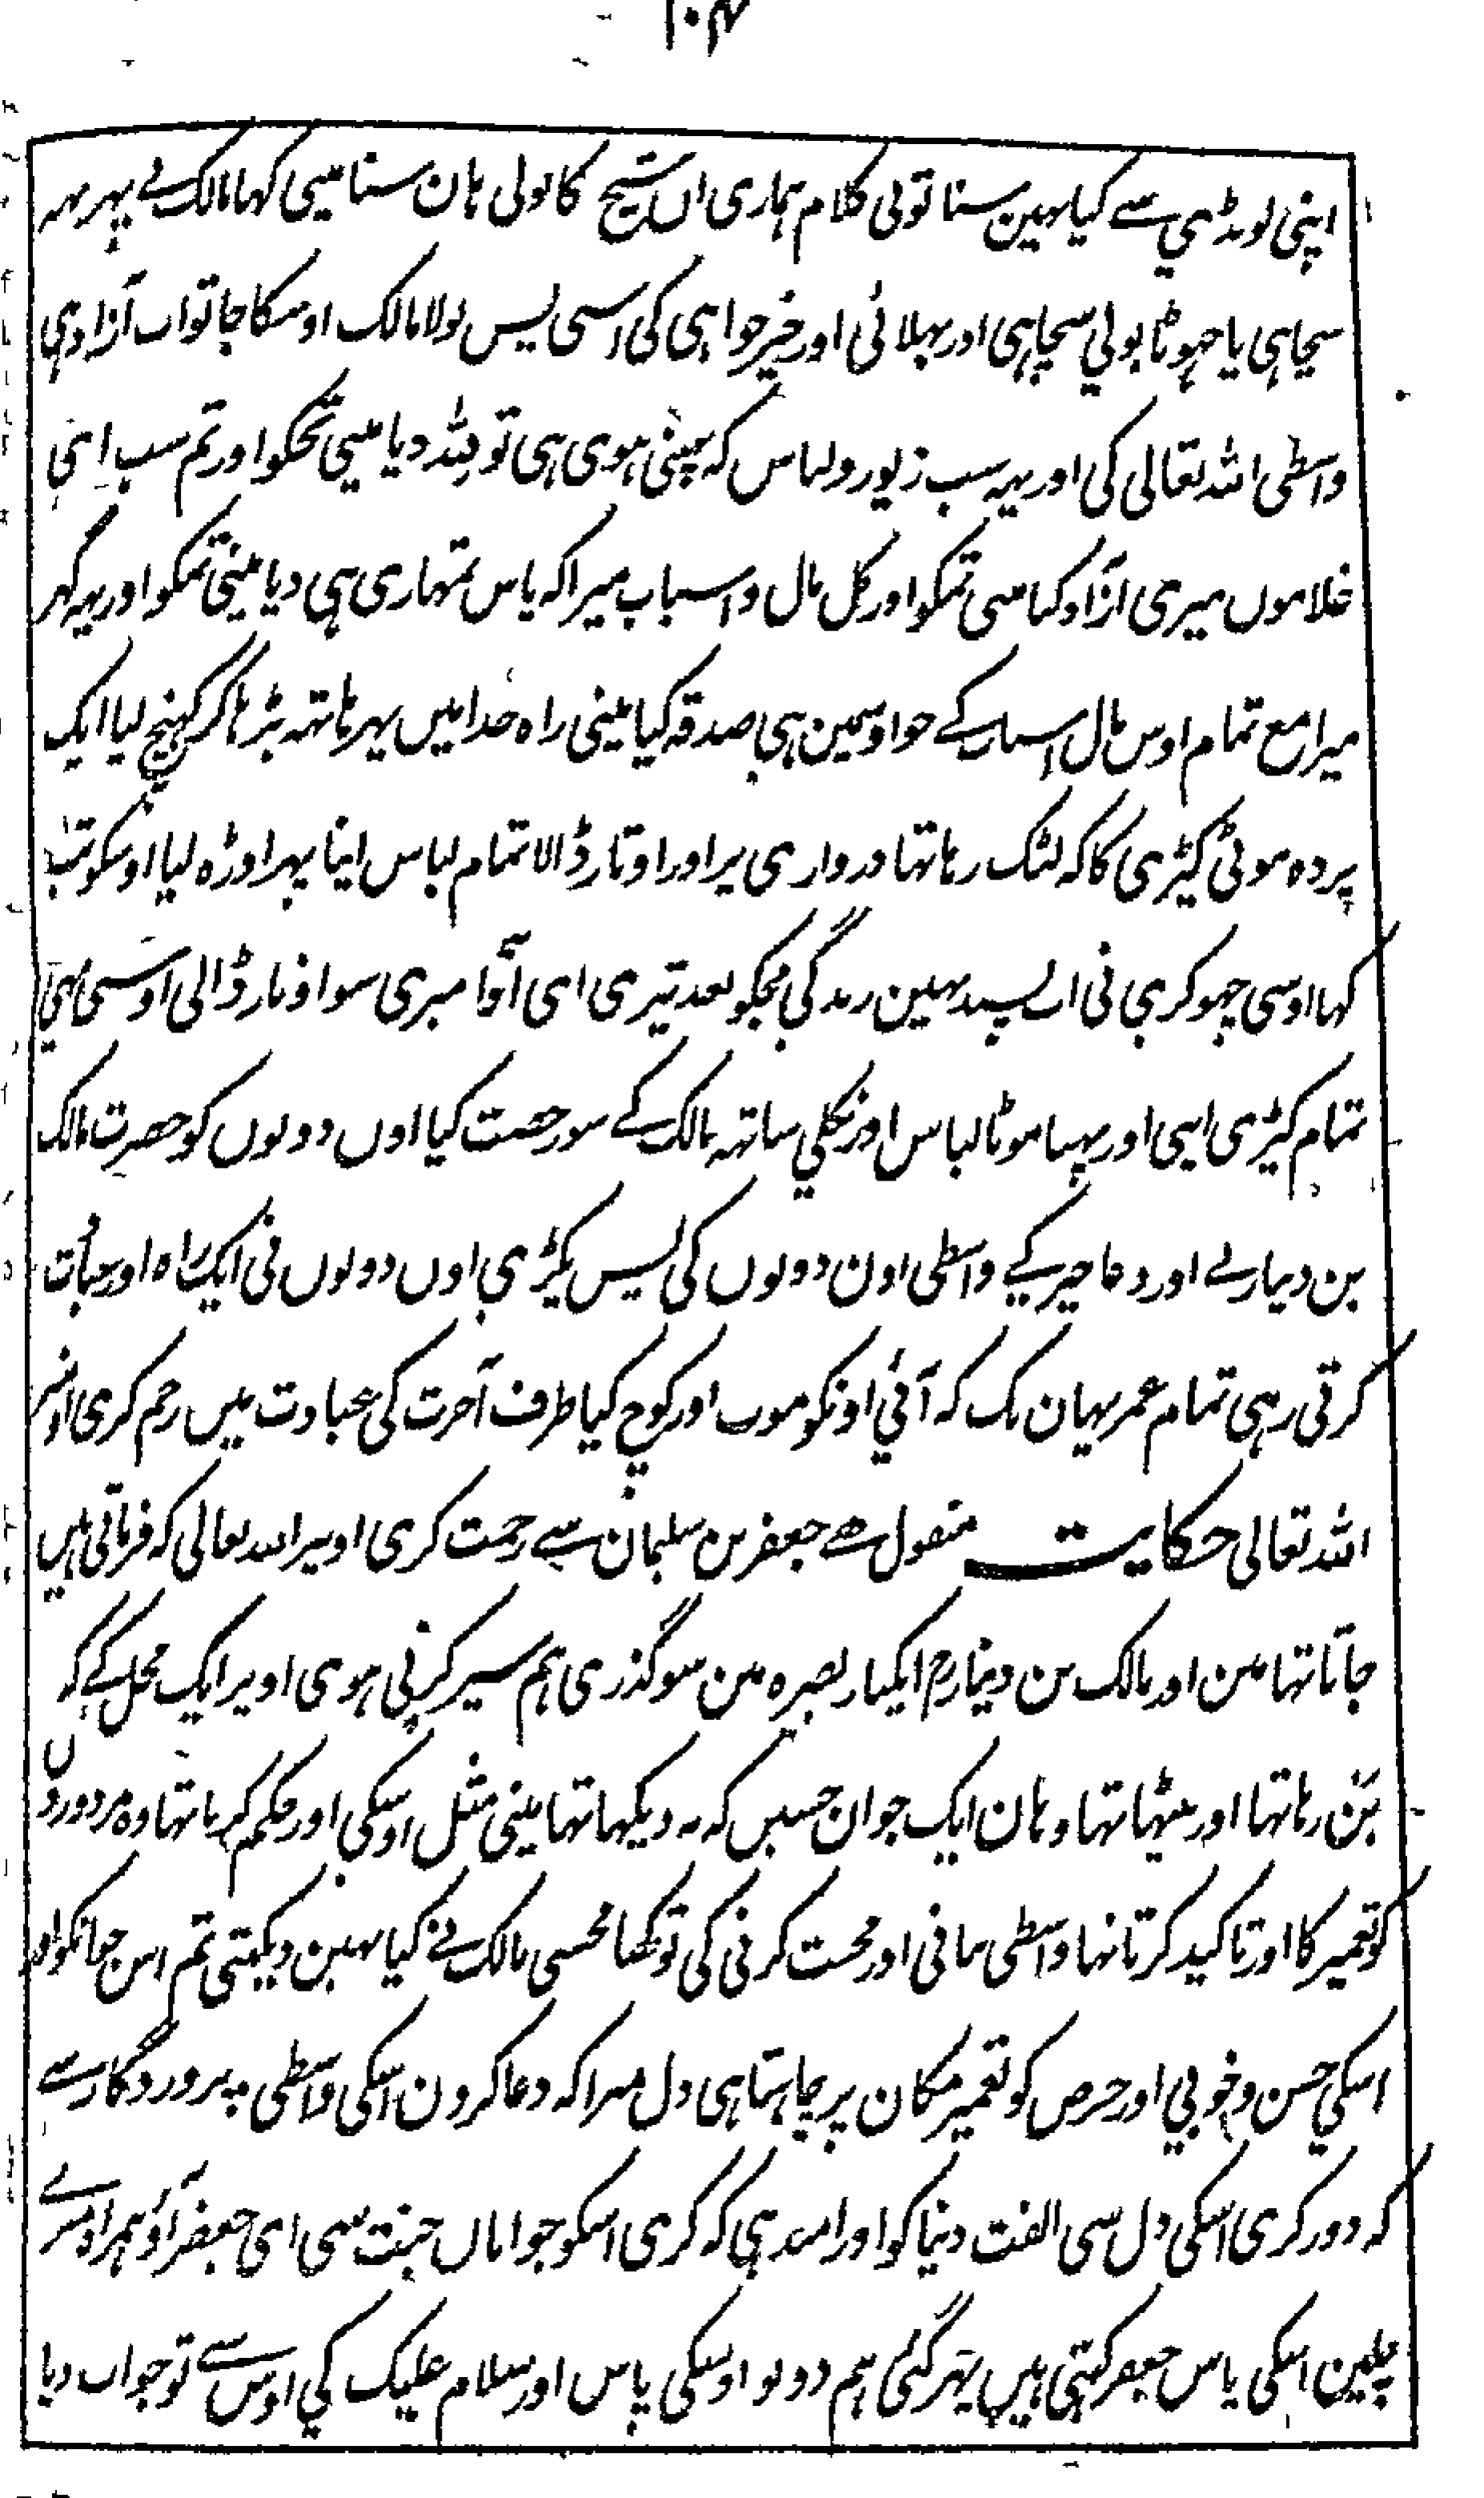 ۱۰۴
اپنی لونڈی سے کیا نہین سنا تونی کلام ہماری اس شیخ کا بولی ہان سنا مینی کہا مالک نے پہر یہہ
سچا ہی یا جہوٹا بولی سچا ہی اور بہلائی اور خیر خواہی کی اسنی پس بولا مالک اوسکا جا تو اب آزاد ہی
واسطی اللہ تعالی کی اور یہہ سب زیور و لباس کہ پہنی ہوی ہی تو بہی دیا مینی تجکو اور تم سب اپنی
غلاموں میری آزاد کیا مینی تمکو اور کل مال و اسباب میرا کہ پاس تمہاری ہی دیا مینی تمکو اور یہہ گہر
میرا مع تمام اوس مال اسباب کے جو اوسمین ہی صدقہ کیا مینی راہ خدا میں پہر ہاتہہ بڑہا کر کہینچ لیا ایک
پردہ موٹی کپڑی کا کہ لٹک رہا تہا دروازی پر اور اوتار ڈالا تمام لباس اپنا پہر اوڑہ لیا اوسکو تب
کہا اوسی چہوکری نی اب پسند نہین زندگی مجکو بعد تیری ای آقا میری سو اوتار ڈالی اوسنی بہی
تمام کپڑی اپنی اور پہنا موٹا لباس اور نکلی ساتہہ مالک کے سو رخصت کیا اون دونوں کو حضرت مالک
بن دینار نے اور دعا خیر کے واسطی اون دونوں کی پس پکڑی اون دونوں نی ایک راہ اور عبادت
کرتی رہی تمام عمر یہان تک کہ آئی اونکو موت اور کوچ کیا طرف آخرت کی عبادت میں رحم کری اونپر
اللہ تعالی حکایت منقول ہے جعفر بن سلیمان سے رحمت کری اوپر اللہ تعالی کہ فرماتی ہیں
جاتا تہا مین اور مالک بن دینار رح ایکبار بصرہ مین سو گذری ہم سیر کرتی ہوی اوپر ایک محل کے کہ
بن رہا تہا اور بیٹہا تہا وہان ایک جوان حسین کہ نہ دیکہا تہا مینی مثل اوسکی اور حکم کر رہا تہا وہ مزدوروں
کو تعمیر کا اور تاکید کرتا تہا واسطی بنانی اور محنت کرنی کی تو کہا مجسی مالک نے کیا نہین دیکہتی تم اس جوانکو اور
اسکی حسن و خوبی اور حرص کو تعمیر مکان پر چاہتا ہی دل میرا کہ دعا کرون اسکی واسطی پروردگار سے
کہ دور کری اسکی دل سی الفت دنیا کو اور امید ہی کہ کری اسکو جوانان جنت سی ای جعفر آؤ ہمراہ میرے
چلین اسکی پاس جعفر کہتی ہیں پہر گئی ہم دونو اوسکی پاس اور سلام علیک کی اوس سے تو جواب دیا